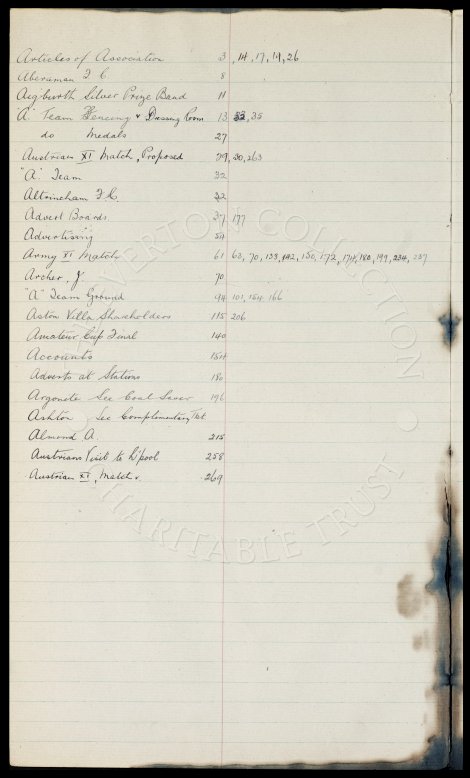 Articles of Association 3, 14, 17, 19, 26
Aberaman F C 8
Aigburth Silver Prize Band 11
"A" Team Fencing & Dressing Room 13 33, 35
do Medals 27
Austrian XI Match, Proposed 29, 30, 263
"A" Team 32
Altrincham F.C. 32
Advert Boards 37 177
Advertising 54
Army XI Match 61 63, 70, 138, 142, 150, 172, 174, 180, 199, 234, 237
Archer, J 70
"A" Team Ground 94 101, 154, 166
Aston Villa Shareholders 115 206
Amateur Cup Final 140
Accounts 154
Adverts at Stations 180
Argonite See Coal Saver 196
Ashton See Complimentary Tkt
Almond A. 215
Austrians Visit to L'pool 258
Austrian XI, Match v. 269
EVERTON COLLECTION
CHARITABLE TRUST